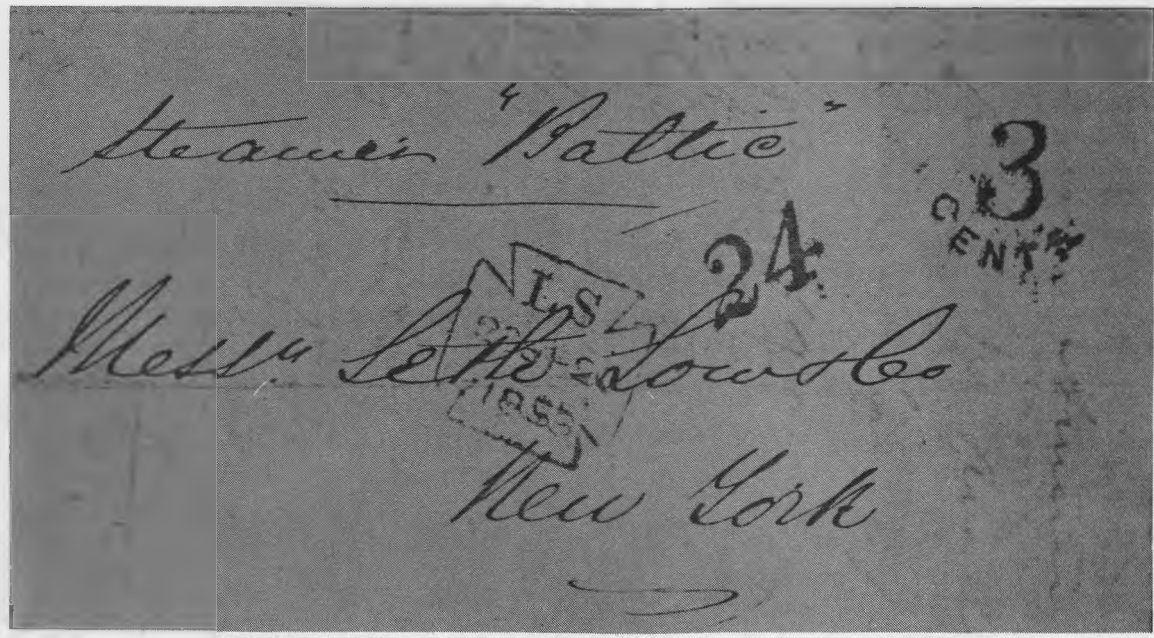 Steamer "Baltic"
3
CENTS
24
LS
1855
Messrs Seth Low & Co
New York